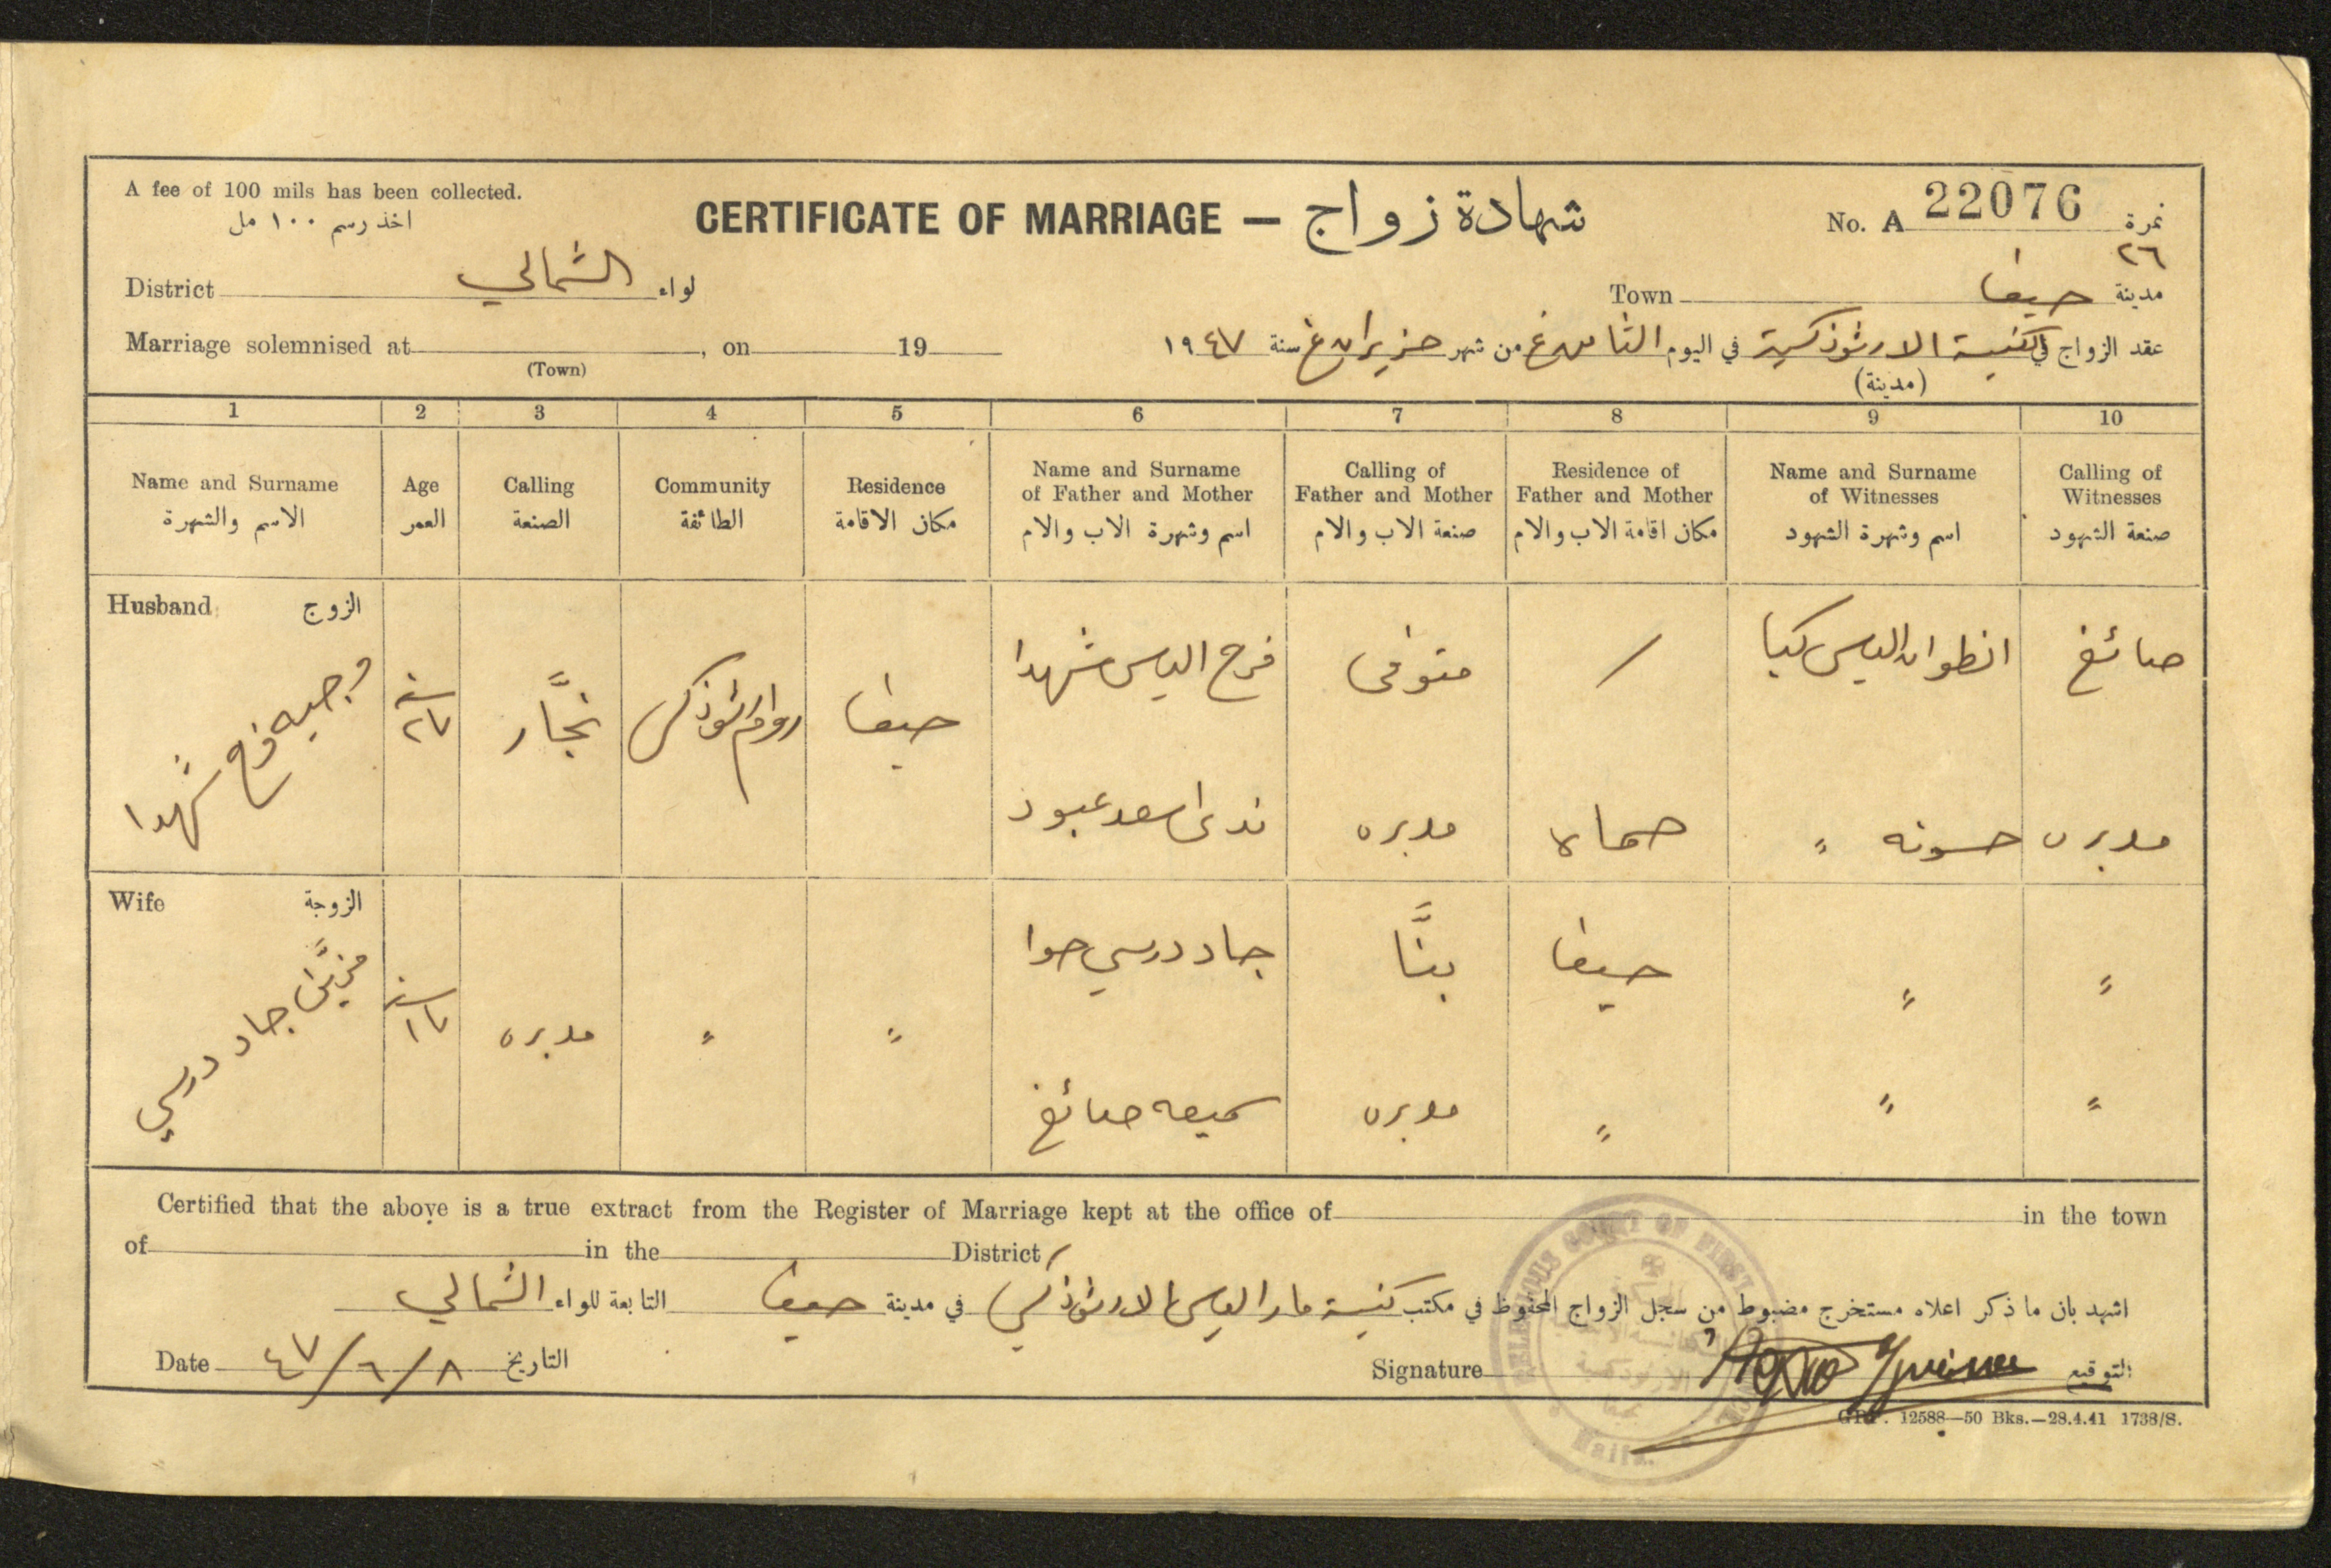 A fee of 100 mils has been collected.
اخذ رسم ١٠٠ مل
CERTIFICATE OF MARRIAGE — شهادة زواج
No. A 22076 نمرة
٢٦
District الشمالي لواء
Town حيفا مدينة
Marriage solemnised at , on 19
(Town)
عقد الزواج في الكنيسة الارثوذكسية في اليوم الثامن غ من شهر حزيران غ سنة ١٩٤٧
(مدينة)
1 2 3 4 5 6 7 8 9 10
Name and Surname
الاسم والشهرة
Age
العمر
Calling
الصنعة
Community
الطائفة
Residence
مكان الاقامة
Name and Surname
of Father and Mother
اسم وشهرة الاب والام
Calling of
Father and Mother
صنعة الاب والام
Residence of
Father and Mother
مكان اقامة الاب والام
Name and Surname
of Witnesses
اسم وشهرة الشهود
Calling of
Witnesses
صنعة الشهود
Husband الزوج
وجيه فرح شهدا
سنة
٢٧
نجَّار
روم ارثوذكس
حيفا
فرح الياس شهدا
متوفى
/
انطوان الياس كيا
صائغ
ندى اسعد عبود
مدبره
حماه
حسونه "
مدبره
Wife الزوجة
جاد درسي
سنة
١٧
مدبره
"
"
جاد درسي حوا
بنَّا
حيفا
"
"
سميعه صائغ
مدبره
"
"
"
Certified that the above is a true extract from the Register of Marriage kept at the office of in the town
of in the District
اشهد بان ما ذكر اعلاه مستخرج مضبوط من سجل الزواج المحفوظ في مكتب كنيسة مار الياس الارثوذكسي في مدينة حيفا التابعة للواء الشمالي
Date ٨/٦/٤٧ التاريخ
Signature التوقيع
RELIGIOUS COURT OF FIRST
الارثوذكسية
Haifa
GPP. 12588—50 Bks.—28.4.41 1738/S.